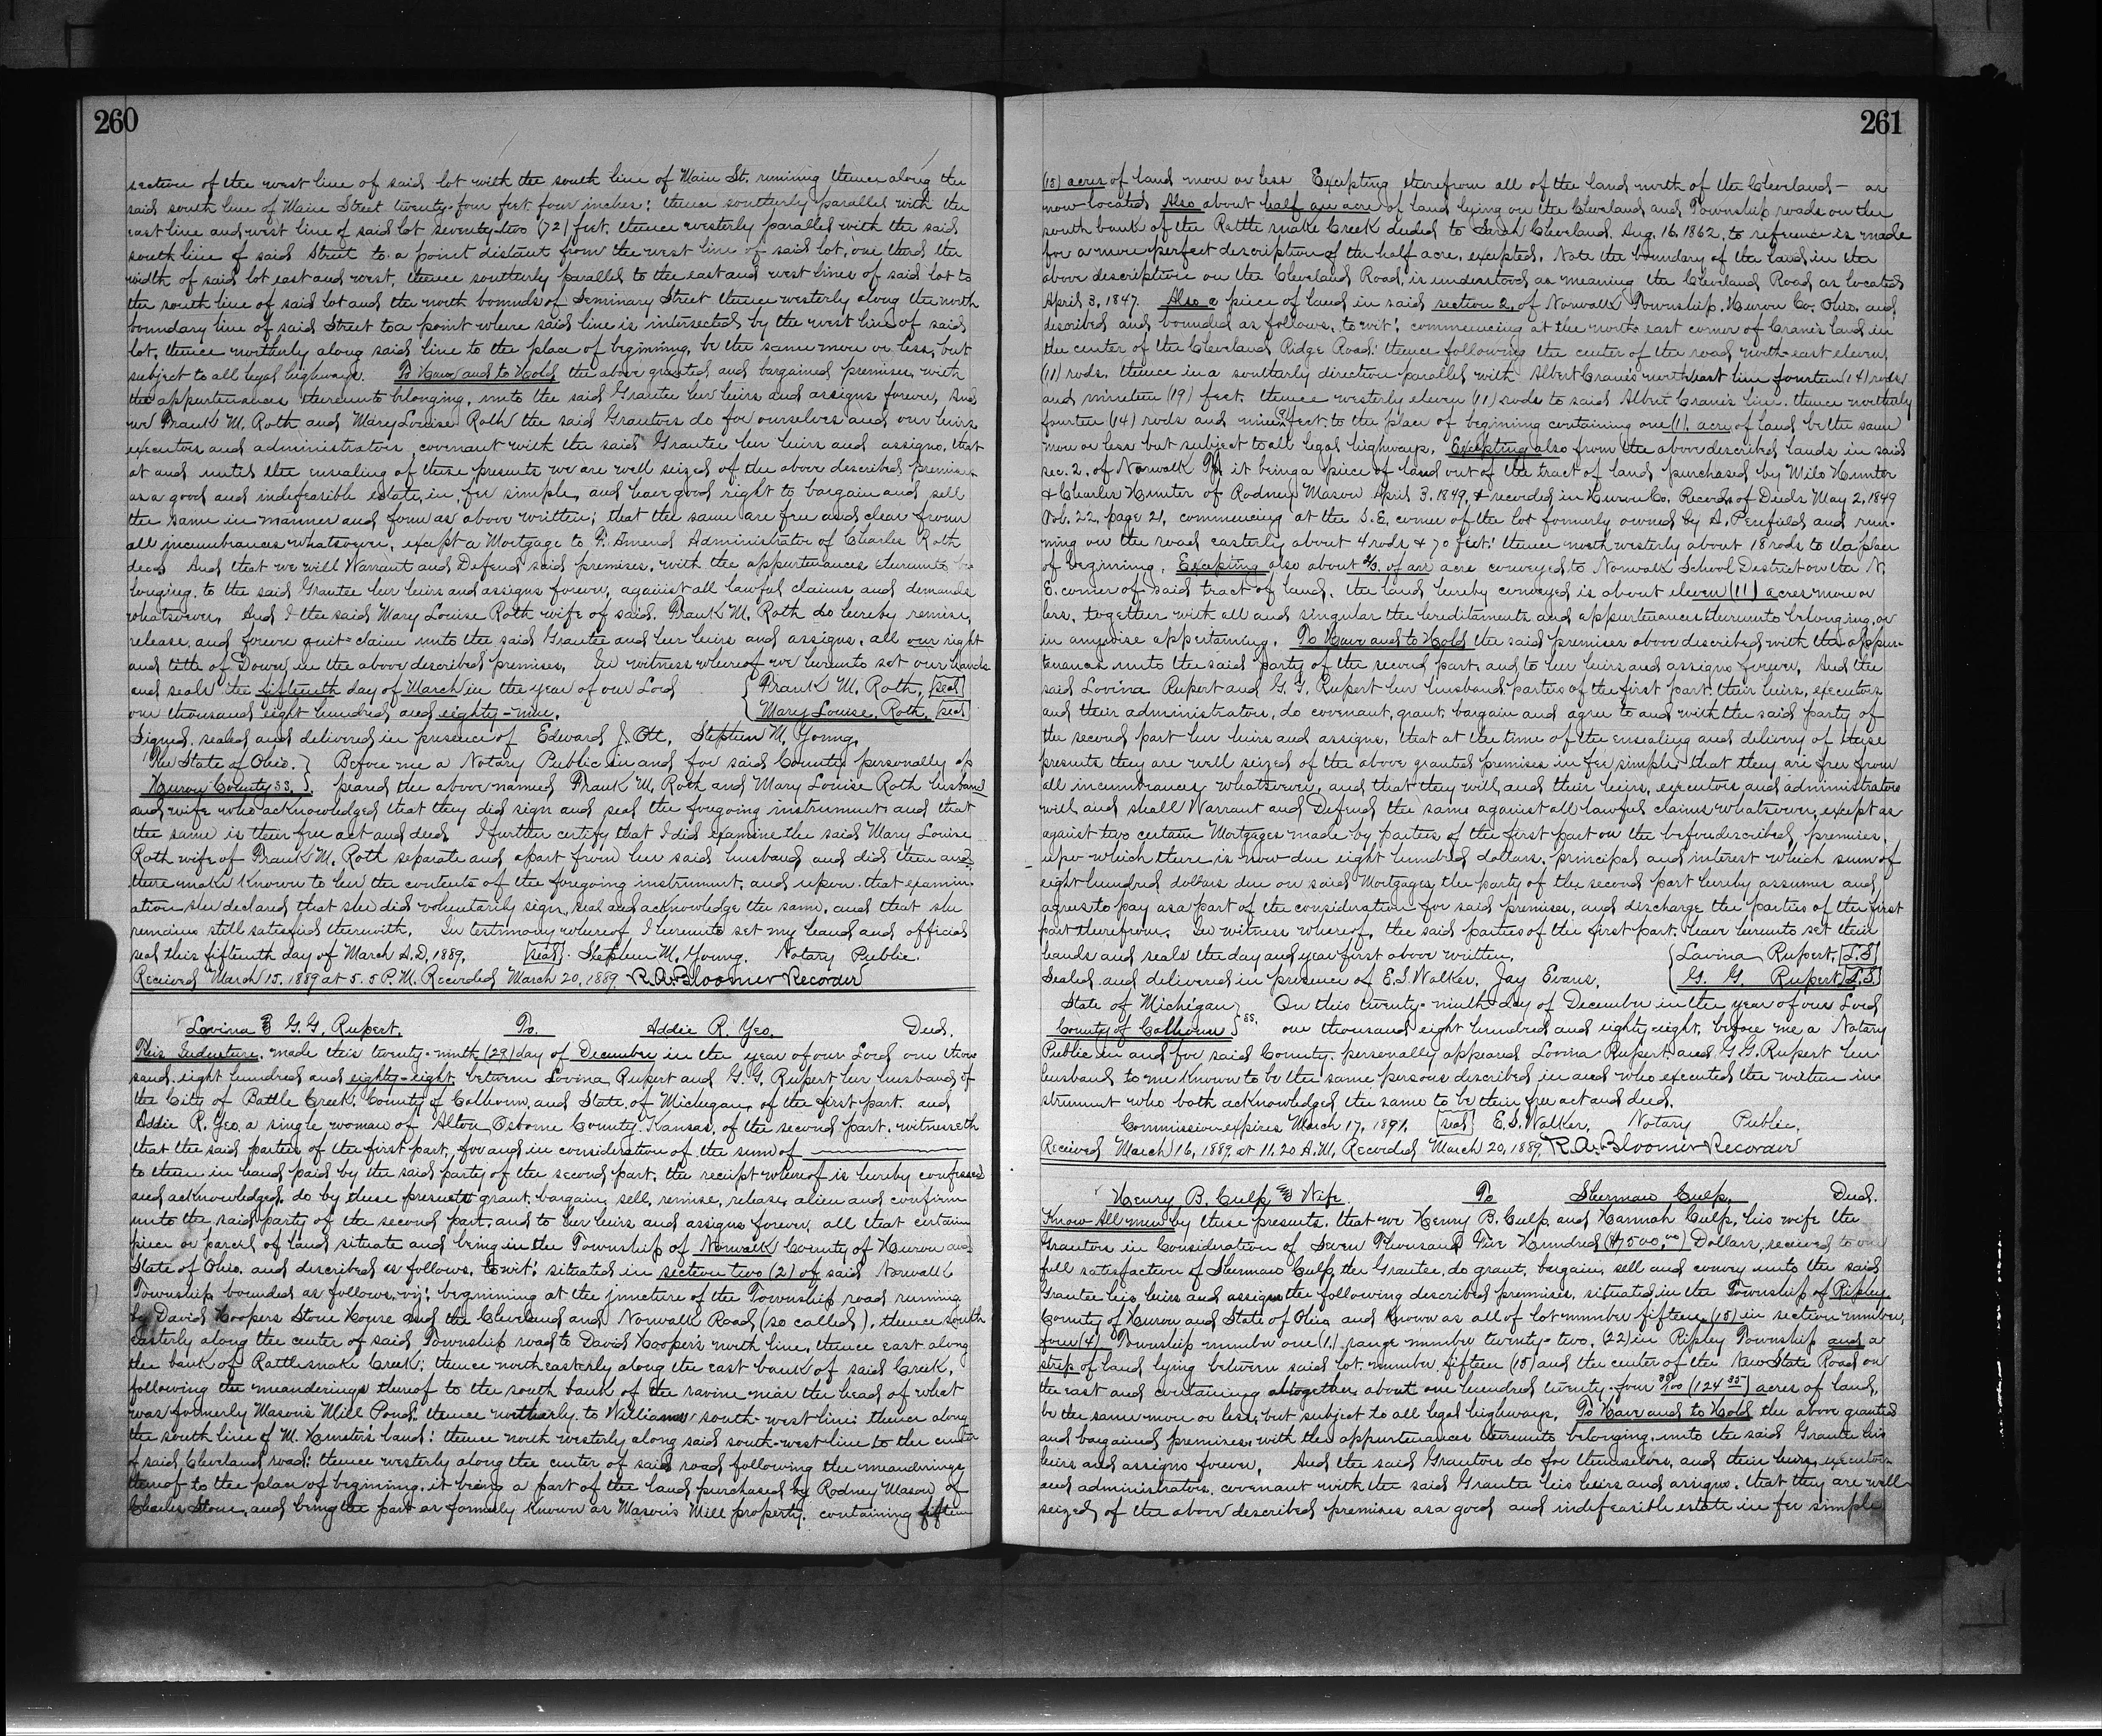 260
section of the west line of said lot with the south line of Main St. running thence along the
said south line of Main Street twenty-four feet four inches: thence southerly parallel with the
east line and west line of said lot seventy-two (72) feet, thence westerly parallel with the said
south line of said Street to a point distant from the west line of said lot, one third the
width of said lot east and west, thence southerly parallel to the east and west lines of said lot to
the south line of said lot and the north bounds of Seminary Street thence westerly along the north
boundary line of said Street to a point where said line is intersected by the west line of said
lot, thence northerly along said line to the place of beginning, be the same more or less, but
subject to all legal highways. To Have and to Hold the above granted and bargained premises, with
the appurtenances thereunto belonging, unto the said Grantee her heirs and assigns forever, And
we Frank M. Roth and Mary Louise Roth the said Grantors do for ourselves and our heirs
executors and administrators, covenant with the said Grantee her heirs and assigns, that
at and until the ensealing of these presents we are well seized of the above described premises
as a good and indefeasible estate, in fee simple, and have good right to bargain and sell
the same in manner and form as above written; that the same are free and clear from
all incumbrances whatsoever, except a Mortgage to F. Amend Administrator of Charles Roth
decd. And that we will Warrant and Defend said premises, with the appurtenances thereunto be
longing, to the said Grantee her heirs and assigns forever, against all lawful claims and demands
whatsoever, And I the said Mary Louise Roth wife of said, Frank M. Roth do hereby remise,
release, and forever quit-claim unto the said Grantee and her heirs and assigns, all our right
and title of Dower in the above described premises, In witness whereof we hereunto set our hands
and seals the fifteenth day of March in the year of our Lord { Frank M. Roth, [seal]
one thousand eight hundred and eighty-nine. Mary Louise. Roth, [seal]
Signed, sealed and delivered in presence of Edward J. Ott, Stephen M. Young,
The State of Ohio. } Before me a Notary Public in and for said County personally ap
Huron County SS. } peared the above named Frank M. Roth and Mary Louise Roth husband
and wife who acknowledged that they did sign and seal the foregoing instrument and that
the same is their free act and deed. I further certify that I did examine the said Mary Louise
Roth wife of Frank M. Roth separate and apart from her said husband and did then and
there make known to her the contents of the foregoing instrument, and upon that examin-
ation she declared that she did voluntarily sign, seal and acknowledge the same, and that she
remains still satisfied therewith. In testimony whereof I hereunto set my hand and official
seal this fifteenth day of March A.D. 1889. [seal] Stephen M. Young. Notary Public.
Received March 15. 1889 at 5.5 P.M. Recorded March 20, 1889 R.A. Bloomer Recorder
Lovina & G.G. Rupert. To Addie R. Yeo. Deed.
This Indenture, made this twenty-ninth (29) day of December in the year of our Lord one thou
sand eight hundred and eighty-eight, between Lovina Rupert and G.G. Rupert her husband of
the City of Battle Creek, County of Calhoun, and State of Michigan, of the first part, and
Addie R. Yeo, a single woman of Alton Osborne County Kansas, of the second part, witnesseth
that the said parties of the first part, for and in consideration of the sum of
to them in hand paid by the said party of the second part, the receipt whereof is hereby confessed
and acknowledged, do by these presents grant, bargain, sell, remise, release, alien and confirm
unto the said party of the second part, and to her heirs and assigns forever, all that certain
piece or parcel of land situate and being in the Township of Norwalk County of Huron and
State of Ohio, and described as follows, to wit: situated in section two (2) of said Norwalk
Township bounded as follows, viz: beginning at the juncture of the Township road running
by David Hoopers Stone House and the Cleveland and Norwalk Road (so called), thence south
easterly along the center of said Township road to David Hooper's north line, thence east along
the bank of Rattlesnake Creek; thence northeasterly along the east bank of said Creek,
following the meanderings thereof to the south bank of the ravine near the head of what
was formerly Mason's Mill Pond, thence northerly to Williams south-west line: thence along
the south line of M. Hunter's land: thence north westerly along said south-west line to the center
of said Cleveland road: thence westerly along the center of said road following the meanderings
thereof to the place of beginning, it being a part of the land purchased by Rodney Mason of
Charles Stone, and being the part as formerly known as Mason's Mill property, containing fifteen
261
(15) acres of land more or less Excepting therefrom all of the land north of the Cleveland — as
now located Also about half an acre of land lying on the Cleveland and Township roads on the
south bank of the Rattle snake Creek deeded to Sarah Cleveland, Aug. 16, 1862, to reference is made
for a more perfect description of the half acre, excepted, Note the boundary of the land in the
above description on the Cleveland Road, is understood as meaning the Cleveland Road as located
April 3, 1847. Also a piece of land in said section 2, of Norwalk Township, Huron Co. Ohio, and
described and bounded as follows, to wit: commencing at the north east corner of Crane's land in
the center of the Cleveland Ridge Road: thence following the center of the road north-east eleven
(11) rods, thence in a southerly direction parallel with Albert Crane's north east line fourteen (14) rods
and nineteen (19) feet, thence westerly eleven (11) rods to said Albert Crane's line, thence northerly
fourteen (14) rods and nine (9) feet, to the place of begining containing one (1) acre of land be the same
more or less but subject to all legal highways, Excepting also from the above described lands in said
sec. 2, of Norwalk Tp. it being a piece of land out of the tract of land purchased by Milo Hunter
& Charles Hunter of Rodney Mason April 3, 1849, & recorded in Huron Co. Records of Deeds May 2, 1849
Vol. 22, page 21, commencing at the S.E. corner of the lot formerly owned by A. Penfield and run-
ning on the road easterly about 4 rods & 70 feet: thence north westerly about 18 rods to the place
of beginning, Excepting also about of an acre conveyed to Norwalk School District on the N.
E. corner of said tract of land, the land hereby conveyed is about eleven (11) acres more or
less, together with all and singular the hereditaments and appurtenances thereunto belonging, or
in anywise appertaining, To Have and to Hold the said premises above described with the appur-
tenances unto the said party of the second part, and to her heirs and assigns forever, And the
said Lovina Rupert and G.G. Rupert her husband, parties of the first part, their heirs, executors
and their administrators, do covenant, grant, bargain and agree to and with the said party of
the second part her heirs and assigns, that at the time of the ensealing and delivery of these
presents they are well seized of the above granted premises in fee simple; that they are free from
all incumbrances whatsoever, and that they will, and their heirs, executors and administrators
will and shall Warrant and Defend the same against all lawful claims whatsoever, except as
against two certain Mortgages made by parties of the first part on the beforedescribed premises,
upo which there is now due eight hundred dollars, principal and interest which sum of
eight hundred dollars due on said Mortgages, the party of the second part hereby assumes and
agrees to pay as a part of the consideration for said premises, and discharge the parties of the first
part therefrom, In witness whereof, the said parties of the first part, have hereunto set their
hands and seals the day and year first above written. { Lavina Rupert, [L.S]
Sealed and delivered in presence of E.S. Walker, Jay Evans, G. G. Rupert [L.S]
State of Michigan } On this twenty-ninth day of December in the year of our Lord
County of Calhoun } ss. one thousand eight hundred and eighty-eight, before me a Notary
Public in and for said County, personally appeared Lovina Rupert and G.G. Rupert her
husband to me known to be the same persons described in and who executed the within in-
strument who both acknowledged the same to be their free act and deed.
Commission expires March 17, 1891, [seal] E.S. Walker, Notary Public,
Received March 16, 1889, at 11.20 A.M, Recorded March 20, 1889 R.A. Bloomer Recorder
Henry B. Culp & Wife. To Sherman Culp. Deed.
Know All men by these presents, that we Henry B. Culp, and Hannah Culp, his wife the
Grantors in Consideration of Seven Thousand Five Hundred ($7500,00) Dollars, received to our
full satisfaction of Sherman Culp, the Grantee, do grant, bargain, sell and convey unto the said
Grantee his heirs and assigns the following described premises, situated in the Township of Ripley
County of Huron and State of Ohio and known as all of lot number fifteen (15) in section number
four (4) Township number one (1) range number twenty-two, (22) in Ripley Township and a
strip of land lying between said lot, number fifteen (15) and the center of the New State Road on
the east and containing altogether about one hundred twenty-four 35/100 (124 35) acres of land,
be the same more or less, but subject to all legal highways, To Have and to Hold the above granted
and bargained premises, with the appurtenances thereunto belonging, unto the said Grantee his
heirs and assigns forever, And the said Grantors do for themselves, and their heirs, executors
and administrators, covenant with the said Grantee his heirs and assigns, that they are well
seized, of the above described premises as a good and indefeasible estate in fee simple